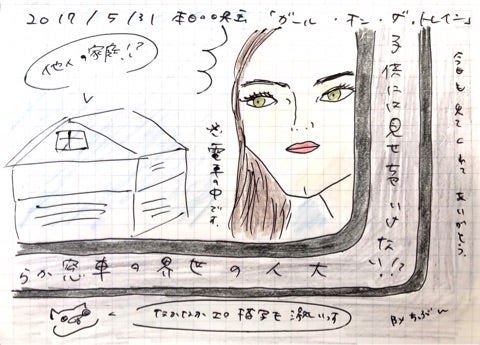 2017/5/31 本日の映画 「ガール・オン・ザ・トレイン」
他人の家庭!?
電車の中です。
子供には見せちゃいけない!?
今日も見てくれてありがとう。
大人の世界の車窓から
なかなかエロ描写も激しいっす
By